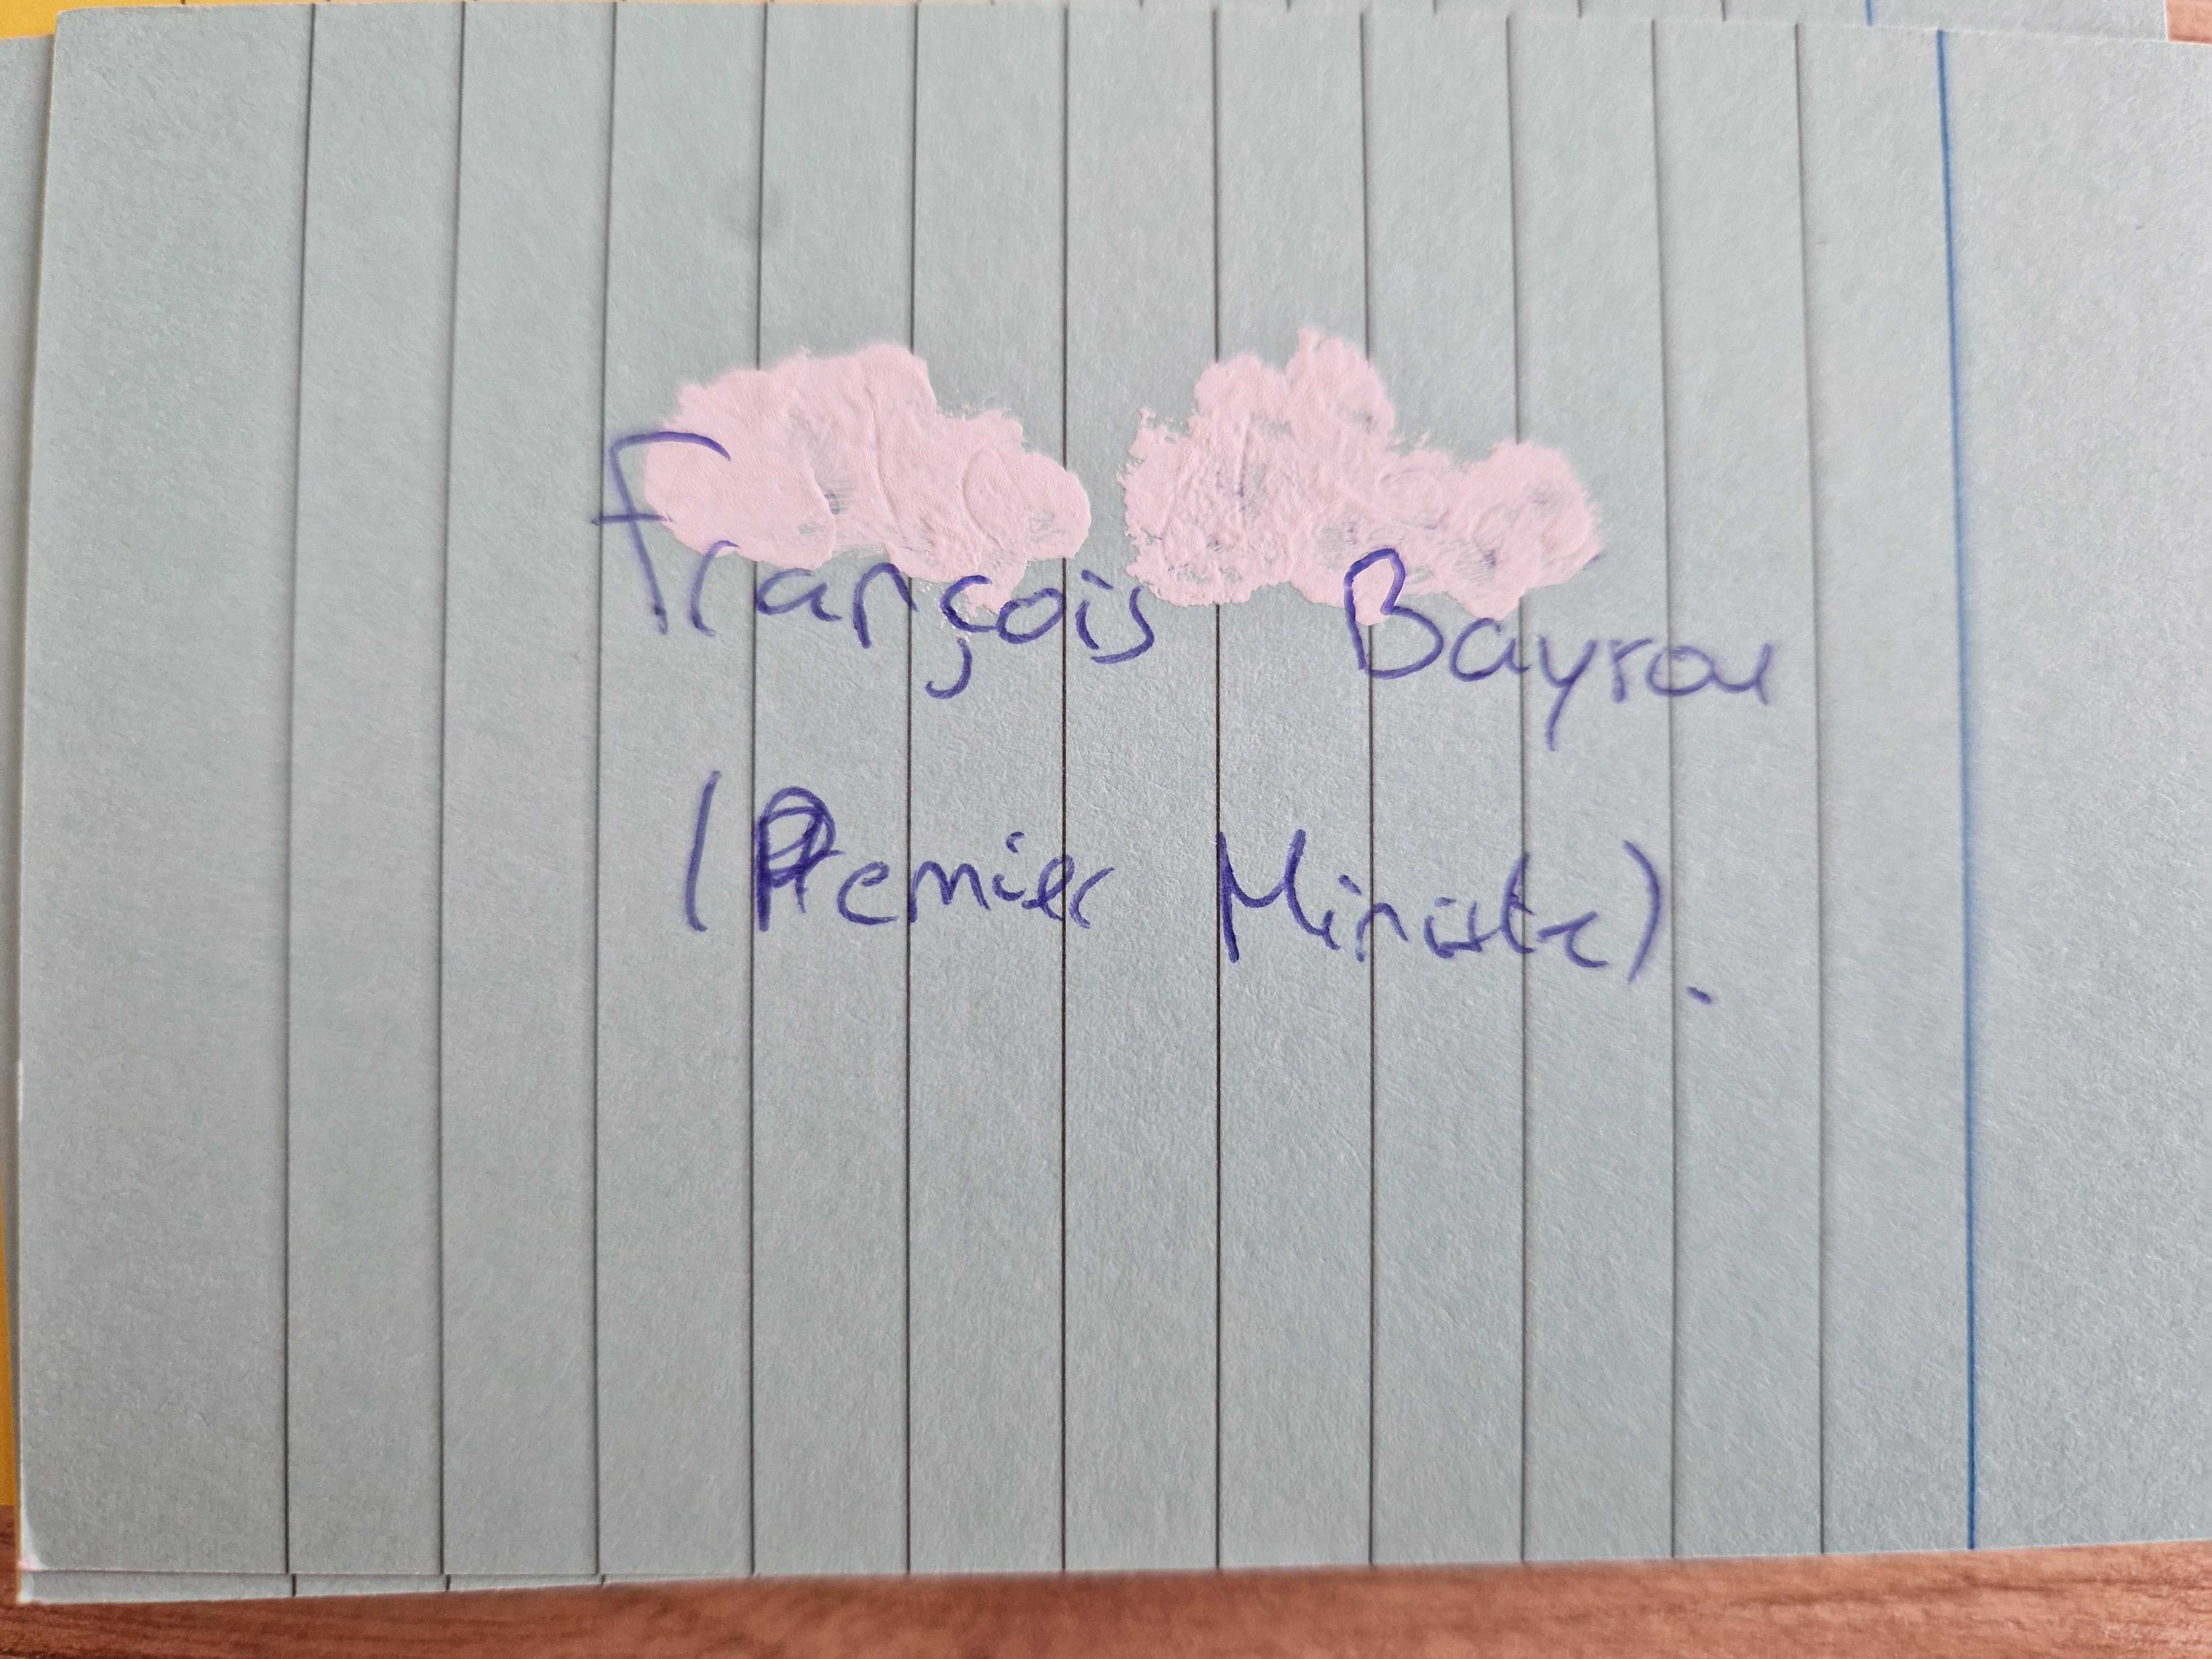 François Bayrou
(Premier Ministre).